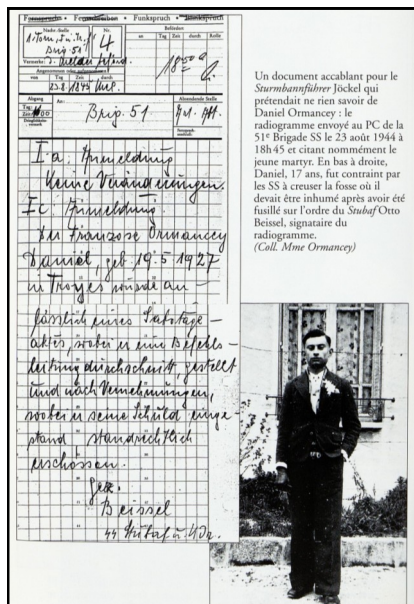 Fernspruch • Fernschreiben • Funkspruch • Blinkspruch
Nachr.-Stelle
Nr.
4
Brig. 51
Befördert
an Tag Zeit durch Rolle
18 50
Vermerke:
Angenommen oder aufgenommen
von Tag Zeit durch
23.8. 1845
Abgang
An:
Absendende Stelle
Tag:
Zeit:
Brig. 51.
Ia. Meldung
Keine Veränderungen.
Ic.
Der Franzose Ormancey
Daniel, geb. 19.5.1927
in Troyes wurde an-
lässlich eines Sabotage-
aktes, wobei er eine Befehls-
leitung durchschnitt, gestellt
und nach Vernehmungen,
wobei er seine Schuld einge
stand standrechtlich
erschossen.
Gez.
Beissel
SS Stubaf u. Kdr.
Un document accablant pour le
Sturmbannführer Jöckel qui
prétendait ne rien savoir de
Daniel Ormancey : le
radiogramme envoyé au PC de la
51e Brigade SS le 23 août 1944 à
18h45 et citant nommément le
jeune martyr. En bas à droite,
Daniel, 17 ans, fut contraint par
les SS à creuser la fosse où il
devait être inhumé après avoir été
fusillé sur l'ordre du Stubaf Otto
Beissel, signataire du
radiogramme.
(Coll. Mme Ormancey)